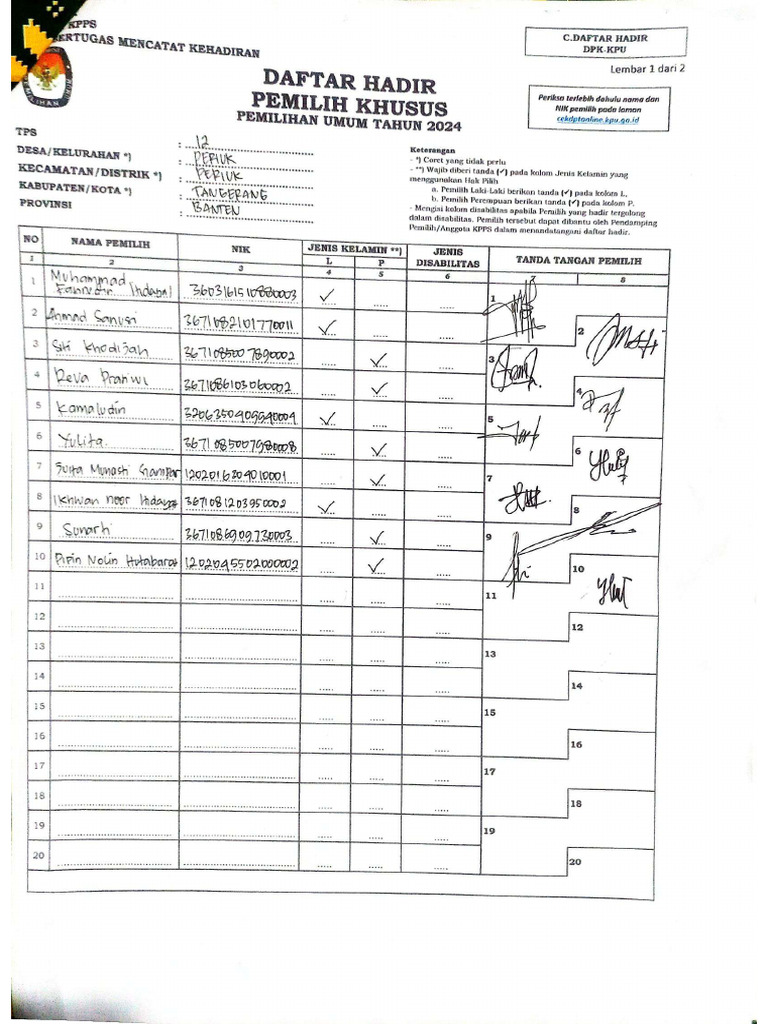 KPPS
ERTUGAS MENCATAT KEHADIRAN
C.DAFTAR HADIR
DPK-KPU
Lembar 1 dari 2
PEMILIHAN
DAFTAR HADIR
PEMILIH KHUSUS
PEMILIHAN UMUM TAHUN 2024
Periksa terlebih dahulu nama dan
NIK pemilih pada laman
cekdptonline.kpu.go.id
TPS : 12
DESA/KELURAHAN *) : PERIUK
KECAMATAN/DISTRIK *) : PERIUK
KABUPATEN/KOTA *) : TANGERANG
PROVINSI : BANTEN
Keterangan
- *) Coret yang tidak perlu
- **) Wajib diberi tanda (✓) pada kolom Jenis Kelamin yang
menggunakan Hak Pilih
a. Pemilih Laki-Laki berikan tanda (✓) pada kolom L,
b. Pemilih Perempuan berikan tanda (✓) pada kolom P.
- Mengisi kolom disabilitas apabila Pemilih yang hadir tergolong
dalam disabilitas. Pemilih tersebut dapat dibantu oleh Pendamping
Pemilih/Anggota KPPS dalam menandatangani daftar hadir.
NO NAMA PEMILIH NIK JENIS KELAMIN **) JENIS DISABILITAS TANDA TANGAN PEMILIH
L P
1 2 3 4 5 6 7 8
1 Muhammad Fahrudin Hidayat 3603161510880003 ✓ 1
2 Ahmad Sanusi 3671082101770011 ✓ 2
3 Siti Khodijah 3671085007890002 ✓ 3
4 Reva Pratiwi 3671086103060002 ✓ 4
5 Kamaludin 3206350909990009 ✓ 5
6 Yulita 3671085007980008 ✓ 6
7 1202016309010001 ✓ 7
8 Ikhwan noor Hidayat 3671081203950002 ✓ 8
9 Sunarti 3671086909730003 ✓ 9
10 Pipin Nolin Hutabarat 1202095502000002 ✓ 10
11 11
12 12
13 13
14 14
15 15
16 16
17 17
18 18
19 19
20 20